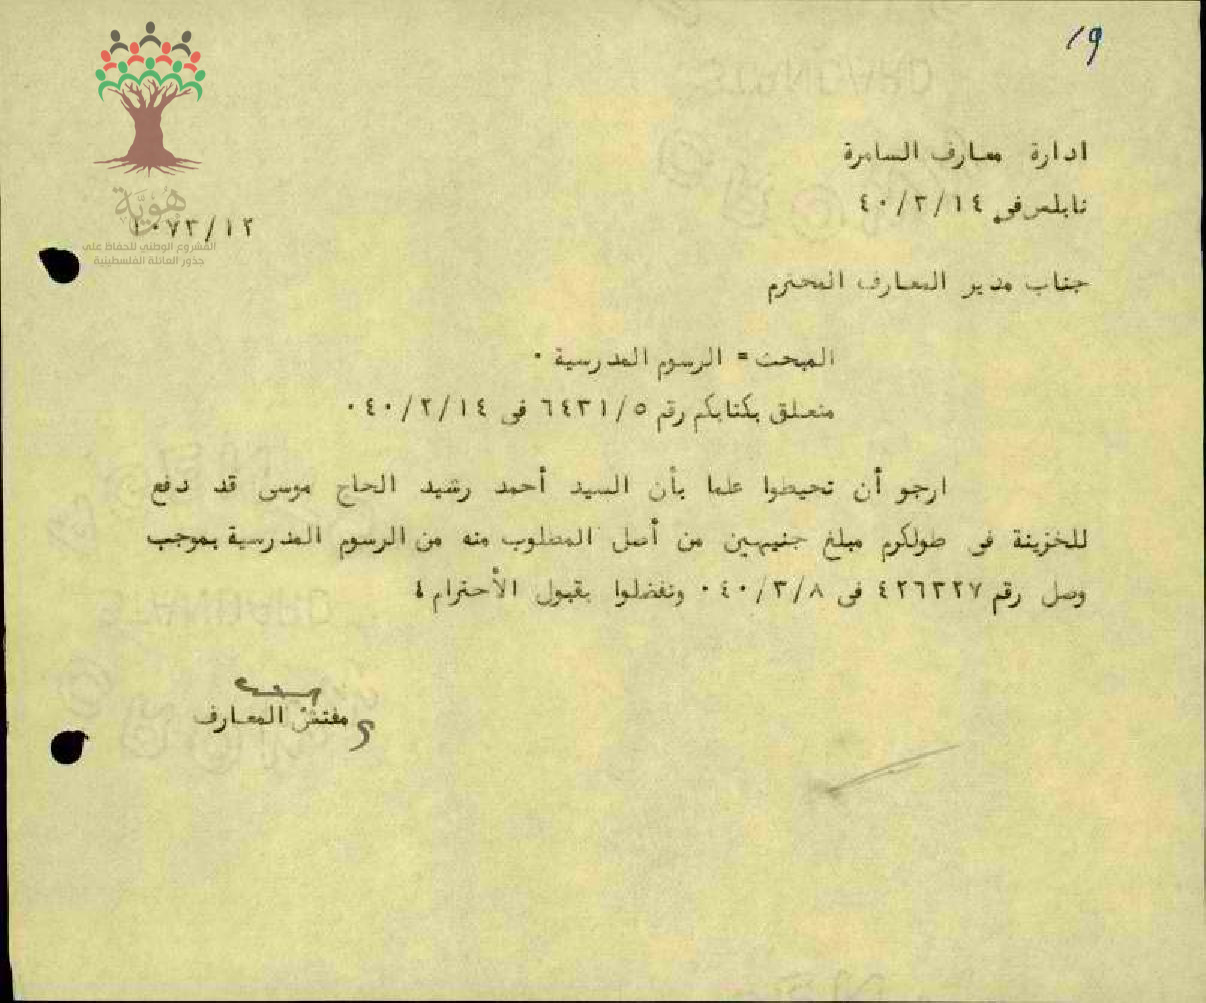 19
ادارة معارف السامرة
نابلس في ٤٠/٣/١٤
١٠٧٣/١٢
هُوِيَّة
المشروع الوطني للحفاظ على
جذور العائلة الفلسطينية
جناب مدير المعارف المحترم
المبحث = الرسوم المدرسية ٠
متعلق بكتابكم رقم ٦٤٣١/٥ فى ٠٤٠/٢/١٤
ارجو أن تحيطوا علما بأن السيد أحمد رشيد الحاج موسى قد دفع
للخزينة فى طولكرم مبلغ جنيهين من أصل المطلوب منه من الرسوم المدرسية بموجب
وصل رقم ٤٢٦٣٢٧ فى ٠٤٠/٣/٨ وتفضلوا بقبول الأحترام ؛
مفتش المعارف